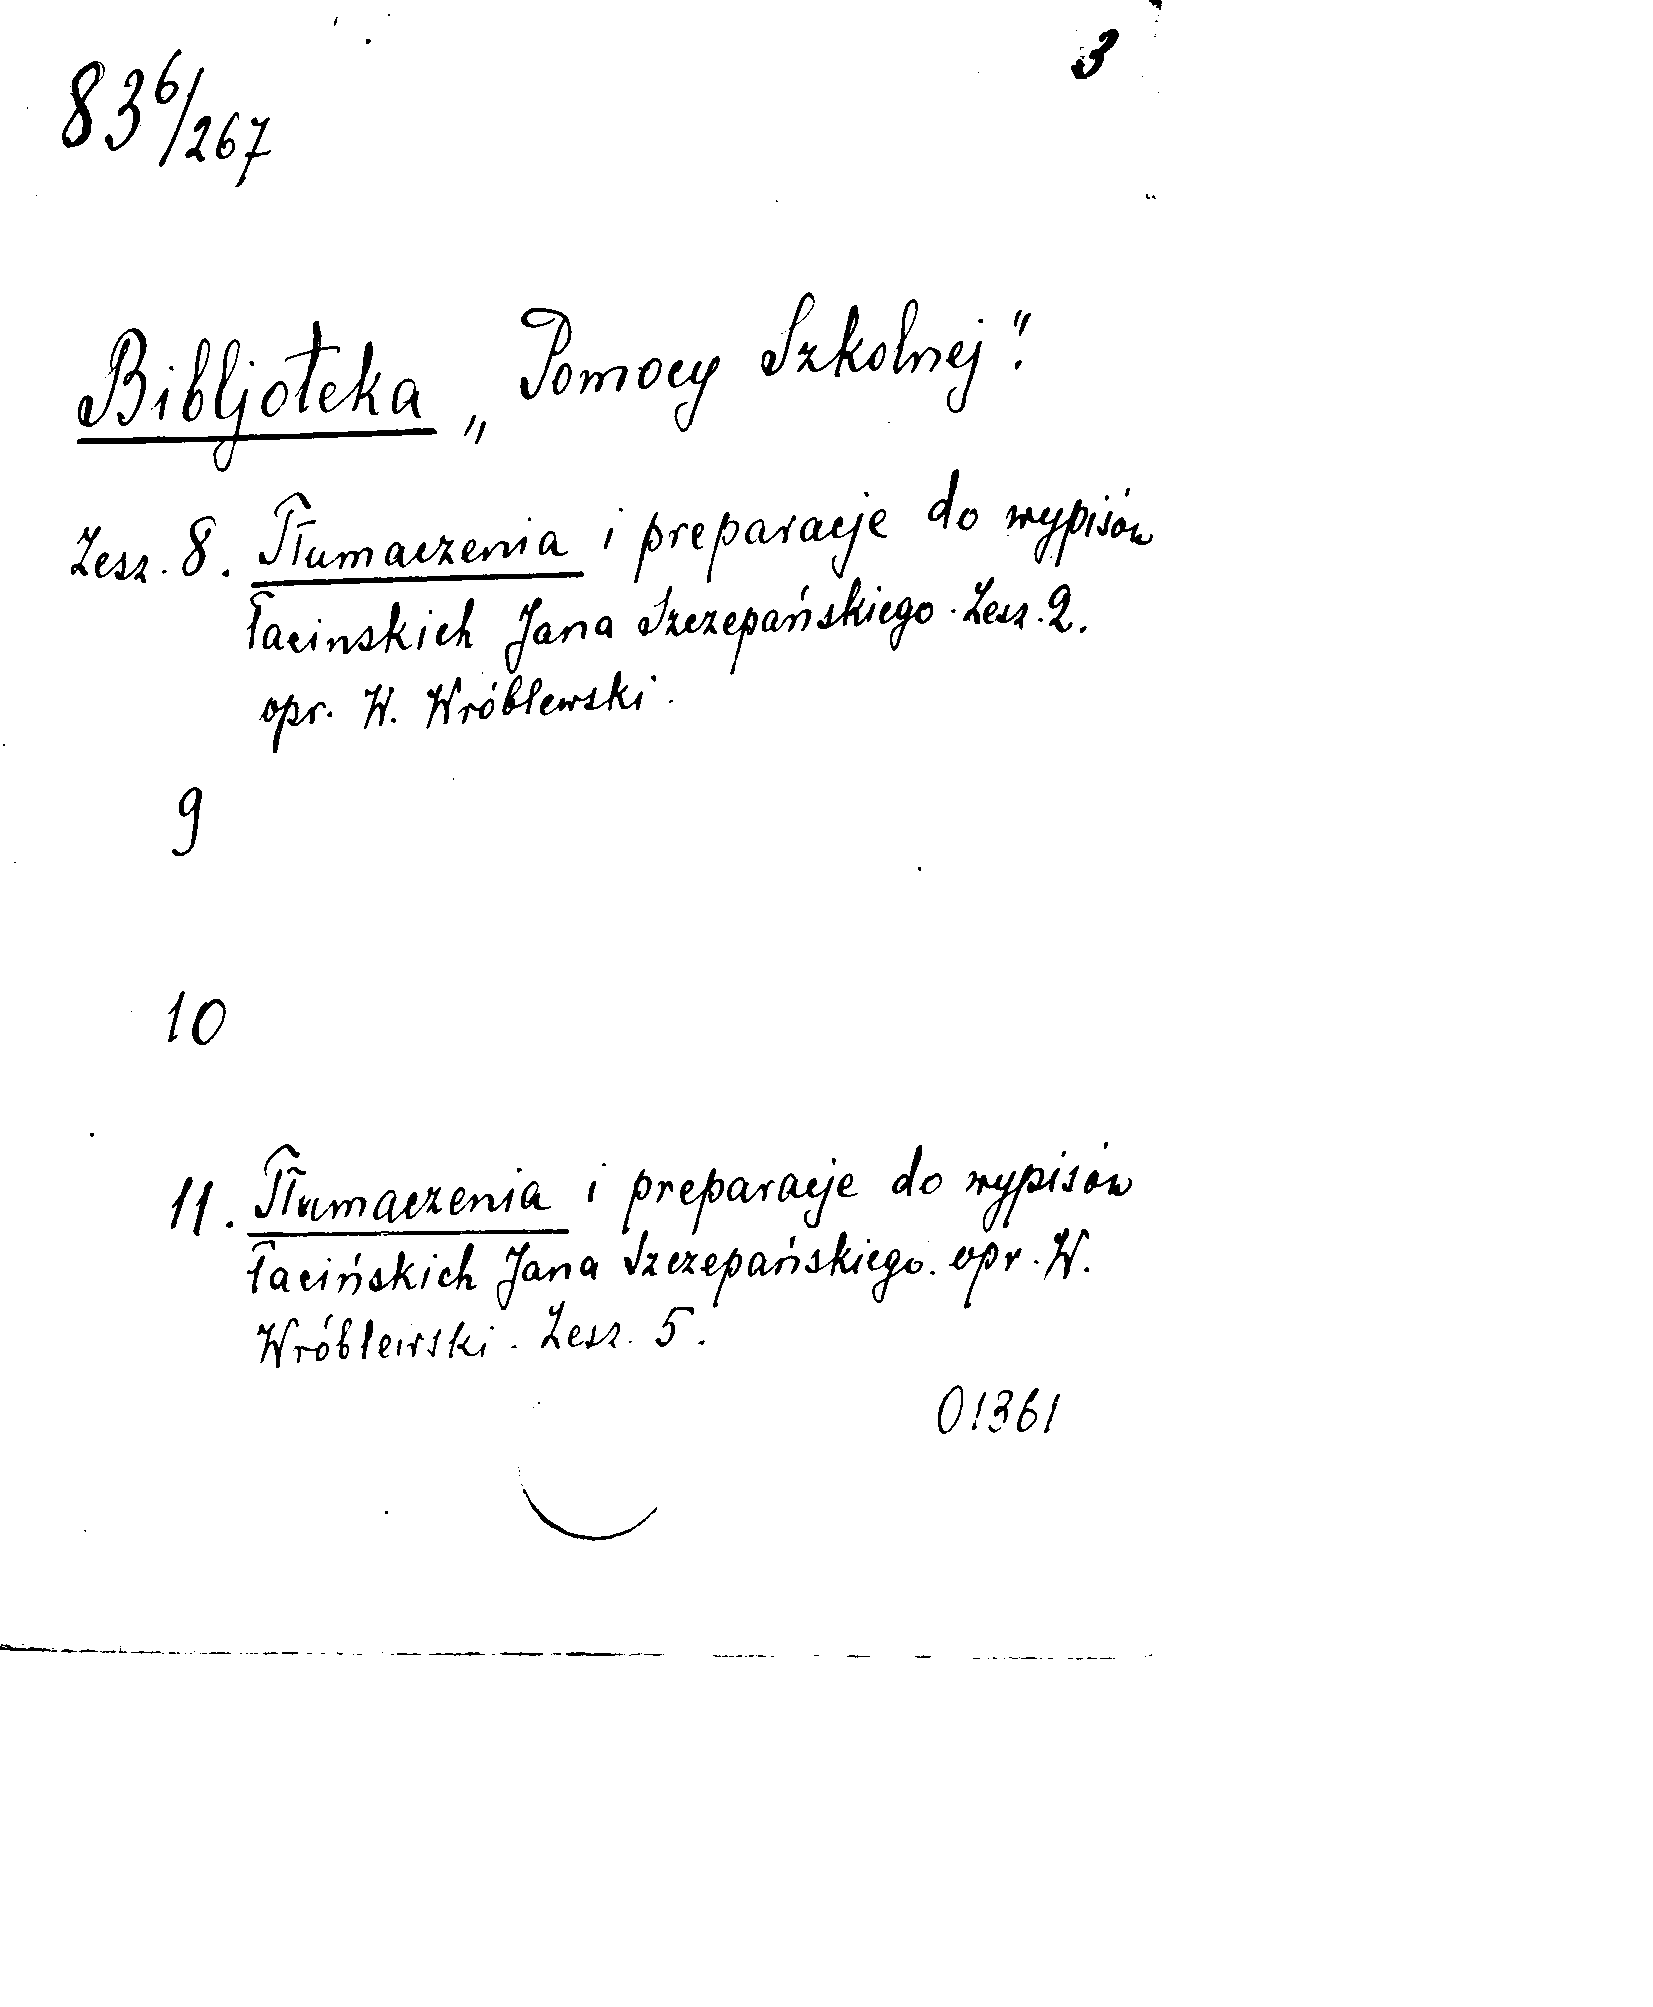 3
83⁶/267
Bibljoteka „Pomocy Szkolnej".
Zesz. 8. Tłumaczenia i preparacje do wypisów
łacinskich Jana Szczepańskiego. Zesz. 2.
opr. W. Wróblewski.
9
10
11. Tłumaczenia i preparacje do wypisów
łacińskich Jana Szczepańskiego. opr. W.
Wróblewski. Zesz. 5.
01361